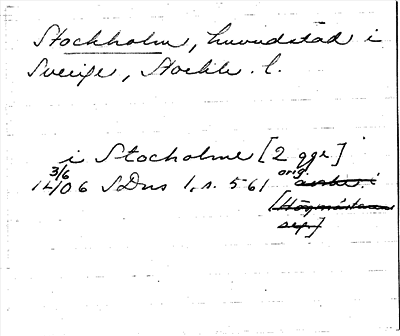 Stockholm, huvudstad i
Sverige, Stockh. l.
i Stocholme [2 ggr]
3/6
1406 SDns 1, s. 561 orig.
avskr. i
[Högmästarens
reg.]